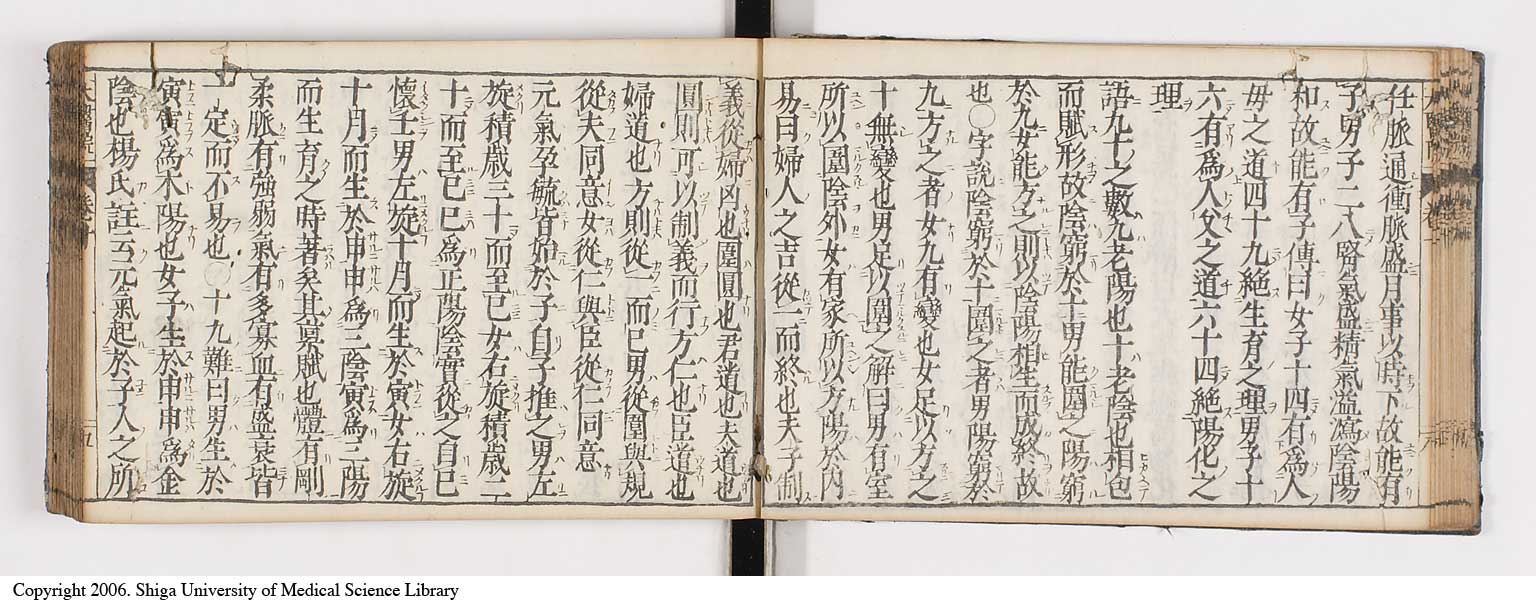 任脈通衝脈盛月事以時下故能有
子男子二八腎氣盛精氣溢瀉陰陽
和故能有子傳曰女子十四有爲人
母之道四十九絶生育之理男子十
六有爲人父之道六十四絶陽化之
理
語九十之數九老陽也十老陰也相包
而賦形故陰窮於十男能圍之陽窮
於九女能方之則以陰陽相生而成終故
也〇字說陰窮於十圍之者男陽窮於
九方之者女九有變也女足以方之
十無變也男足以圍之解曰男有室
所以圍陰外女有家所以方陽於内
易曰婦人之吉從一而終也夫子制
義從婦凶也圍圓也君道也夫道也
圓則可以制義而行方仁也臣道也
婦道也方則從一而已男從圍與規
從夫同意女從仁與臣從仁同意
元氣孕毓皆始於子自子推之男左
旋積歲三十而至巳女右旋積歲二
十而至巳巳爲正陽陰實從之自巳
懷壬男左旋十月而生於寅女右旋
十月而生於申申爲三陰寅爲三陽
而生育之時著矣其稟賦也體有剛
柔脈有強弱氣有多寡血有盛衰皆
一定而不易也〇十九難曰男生於
寅寅爲木陽也女子生於申申爲金
陰也楊氏註云元氣起於子人之所